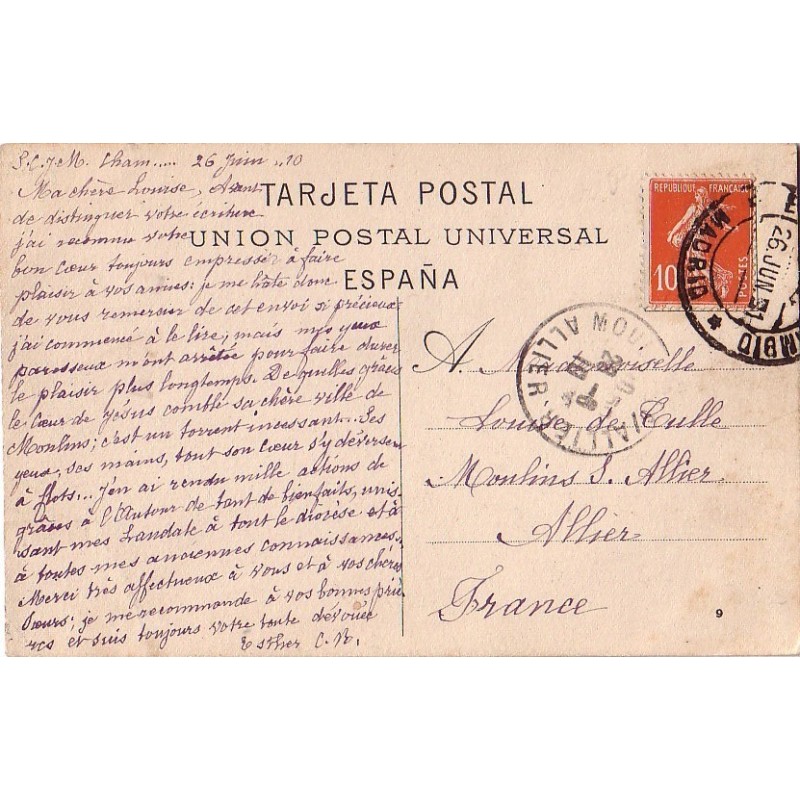 S.C.J.M. Cham..... 26 Juin ..10
TARJETA POSTAL
UNION POSTAL UNIVERSAL
ESPAÑA
Ma chère Louise, Avant
de distinguer votre écriture
j'ai reconnu votre
bon cœur toujours empressé à faire
plaisir à vos amies: je me hâte donc
de vous remercier de cet envoi si précieux
j'ai commencé à le lire; mais mes yeux
paresseux m'ont arrêtée pour faire durer
le plaisir plus longtemps. De quelles grâces
le Cœur de Jésus comble sa chère ville de
Moulins; c'est un torrent incessant. Ses
yeux, ses mains, tout son Cœur s'y déversent
à flots... J'en ai rendu mille actions de
grâces à l'Auteur de tant de bienfaits, unis-
sant mes Laudate à tout le diocèse et à
à toutes mes anciennes connaissances.
Merci très affectueux à vous et à vos chères
Sœurs; je me recommande à vos bonnes priè
res et suis toujours votre toute dévouée
Esther C. R.
REPUBLIQUE FRANÇAISE
10
POSTES
MADRID
26 JUN
CAMBIO
ALLIER
A Mademoiselle
Louise de Tulle
Moulins S. Allier
Allier
France
9